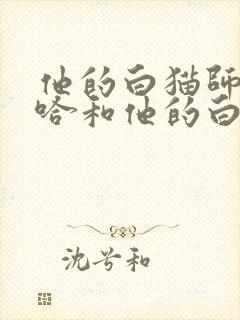 他的白猫師
啥和他的白
沈兮和